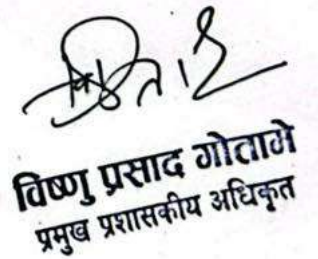 विष्णु प्रसाद गोतामे
प्रमुख प्रशासकीय अधिकृत